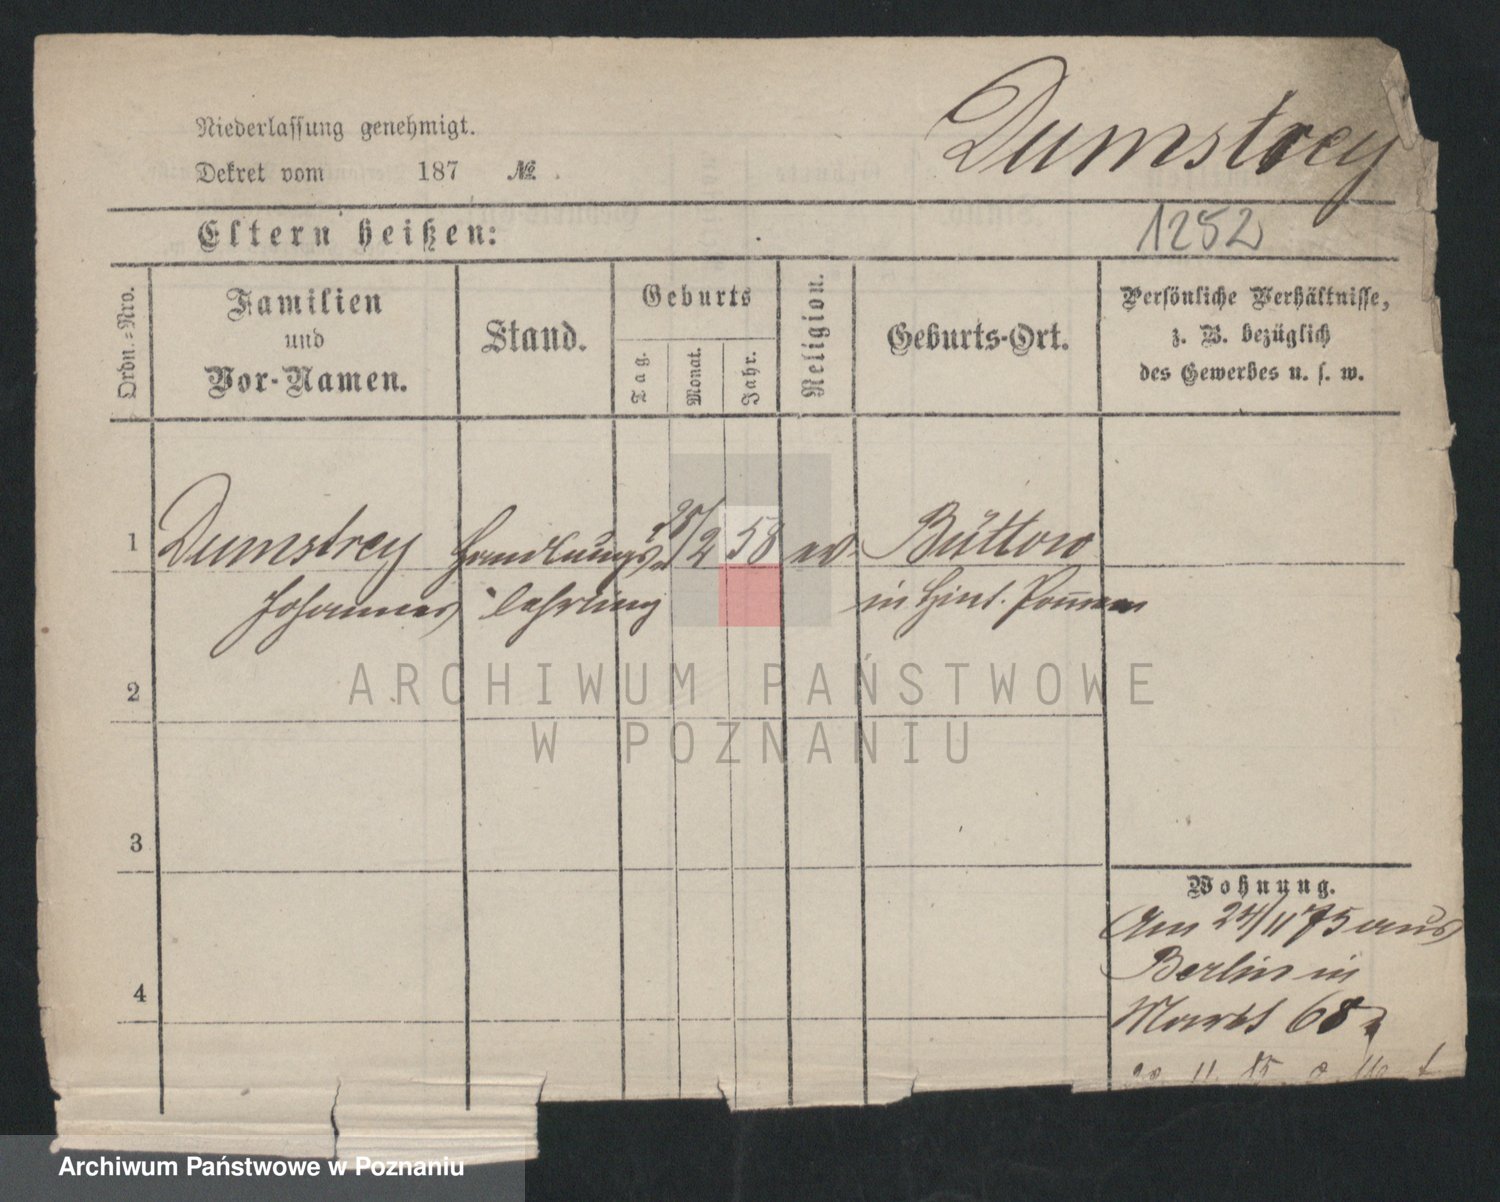 Dumstrey
Niederlassung genehmigt.
Dekret vom 187 №
Eltern heißen:
1252
Ordn.=Nro.
Familien
und
Vor-Namen.
Stand.
Geburts
Tag.
Monat.
Jahr.
Religion.
Geburts-Ort.
Persönliche Verhältnisse,
z. B. bezüglich
des Gewerbes u. s. w.
1 Dumstrey Handlungs 28/2 58 ev Büttow
Johannes lehrling in Hint. Pommern
ARCHIWUM PAŃSTWOWE
2
W POZNANIU
3
Wohnung.
Am 24/11 75 aus
Berlin in
4
Markt 68
Archiwum Państwowe w Poznaniu